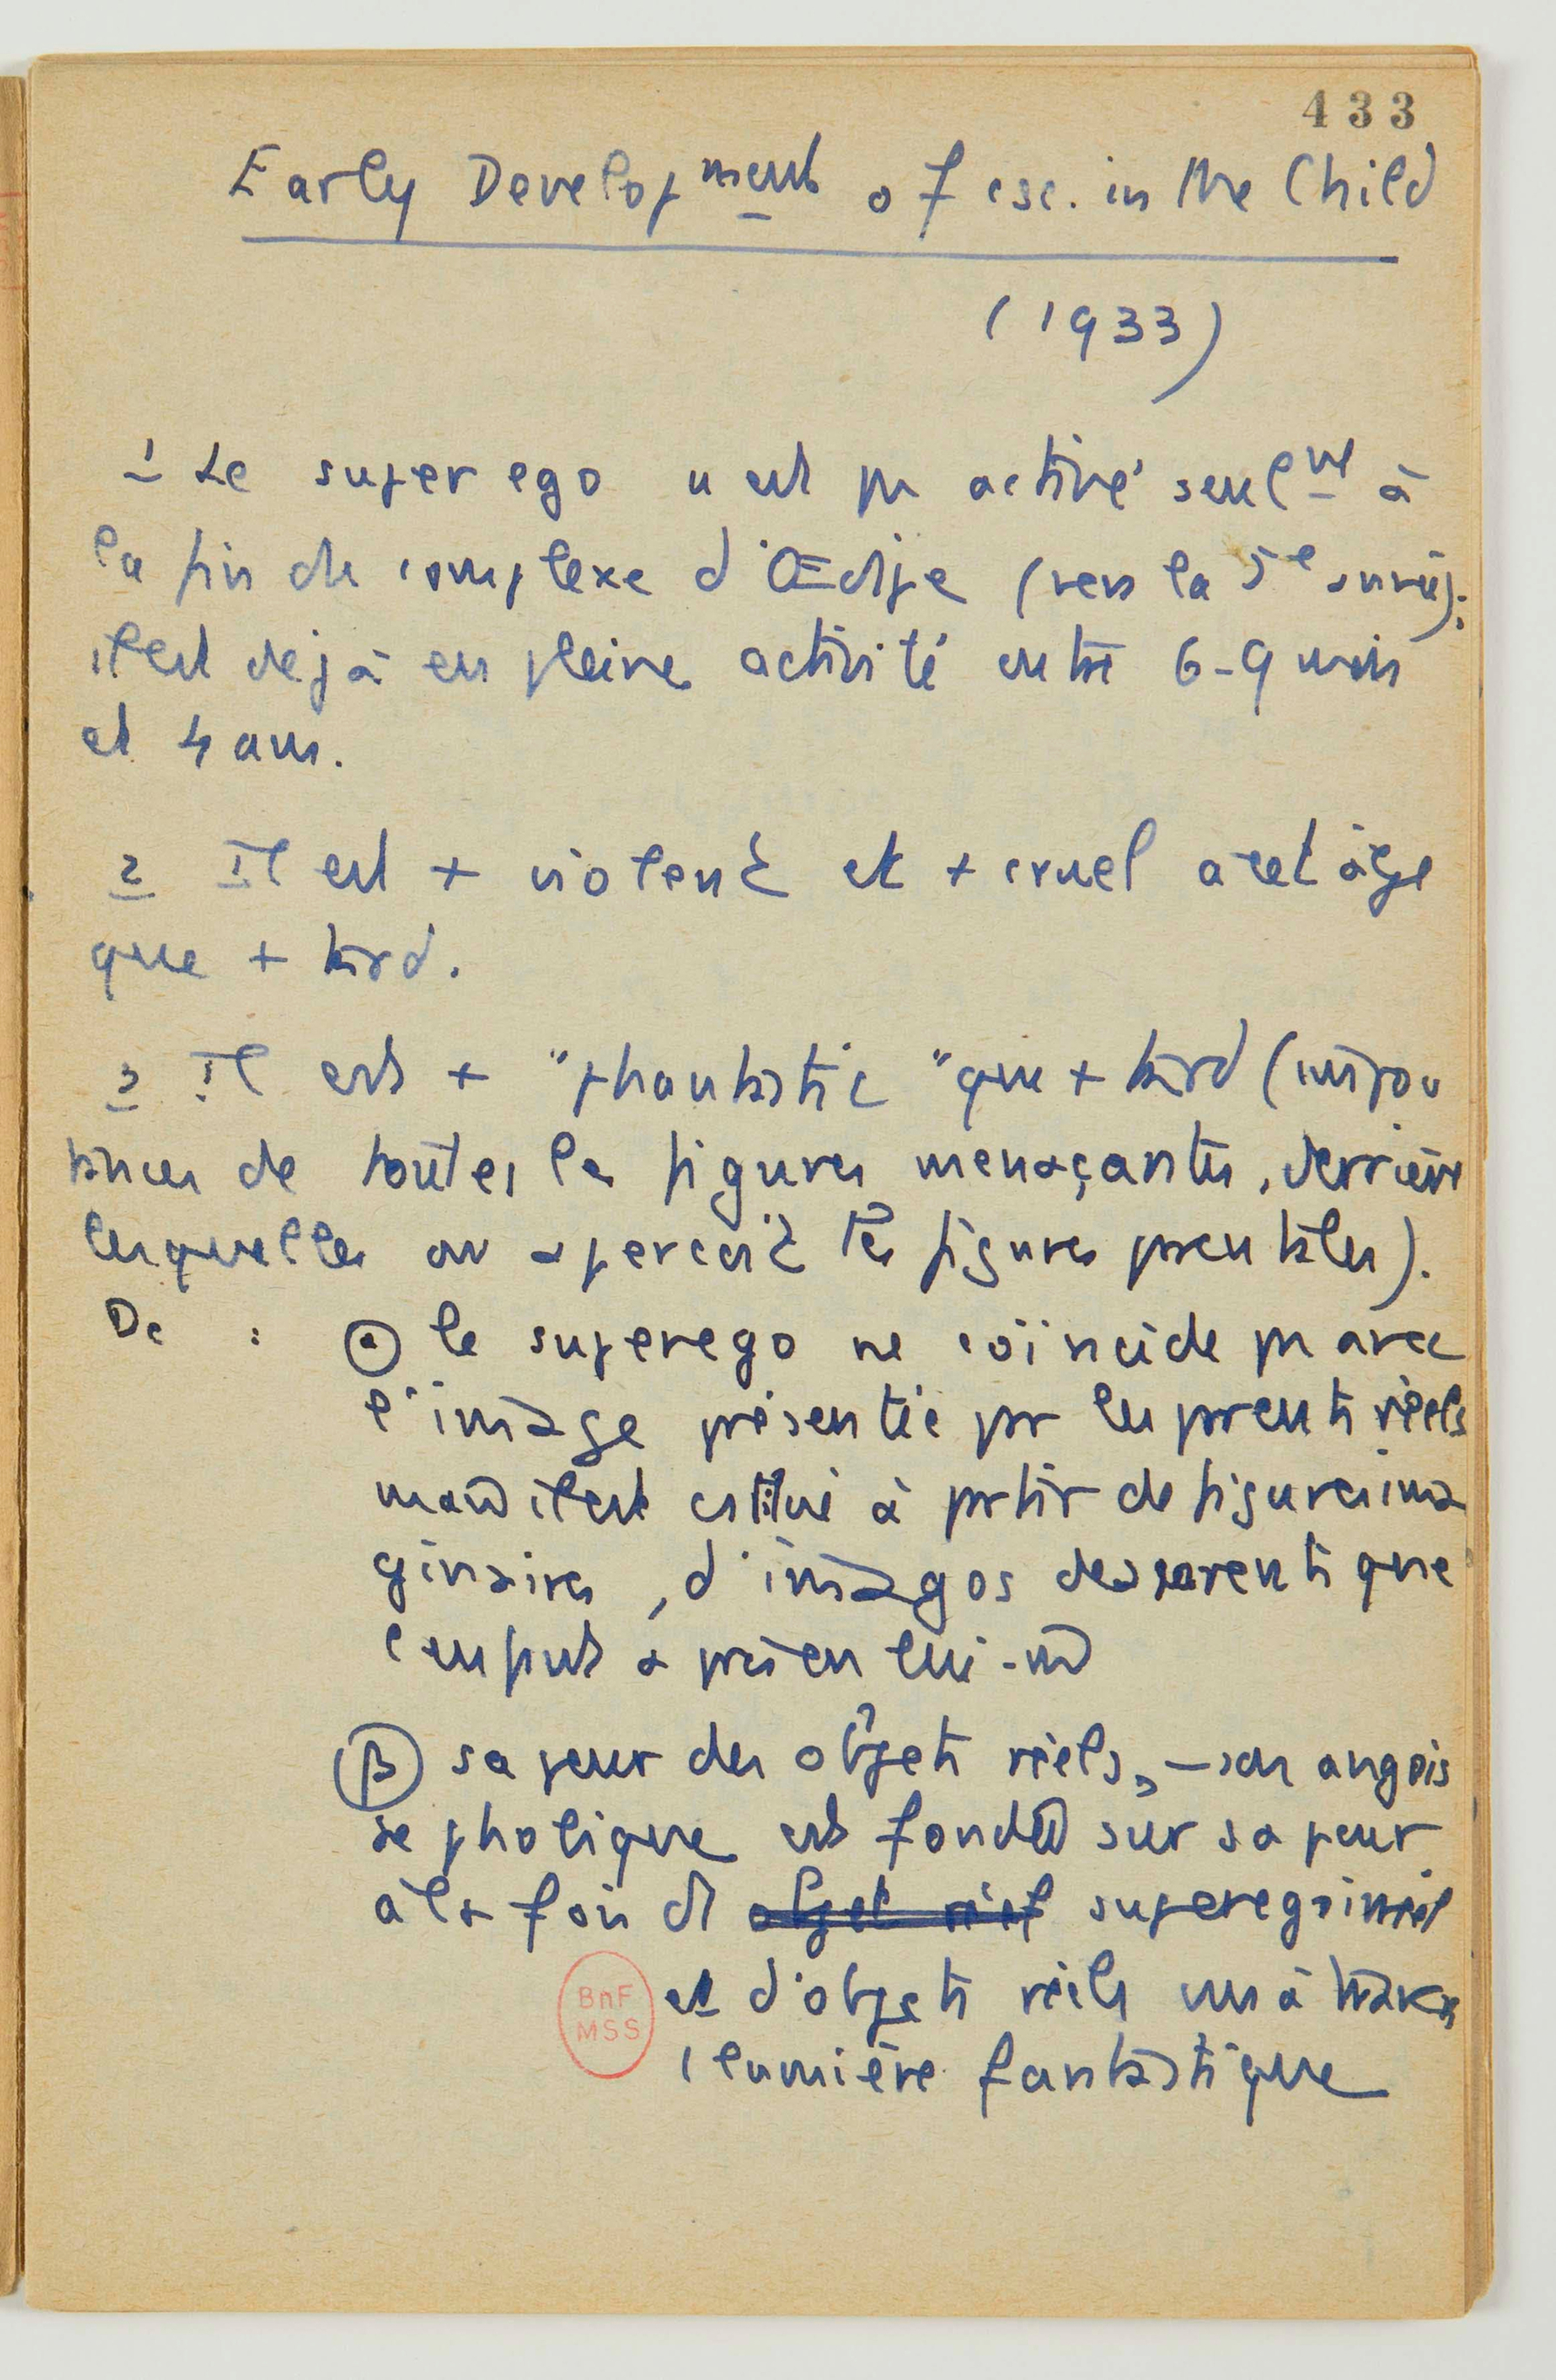 433
Early Development of csc. in the Child
(1933)
1 Le super ego n'est pas activé seulmt à
la fin du complexe d'Œdipe (vers la 5e année);
il est déjà en pleine activité entre 6-9 mois
et 4 ans.
2 Il est + violent et + cruel à cet âge
que + tard.
3 Il est + "phantastic" que + tard (impor
tance de toutes les figures menaçantes, derrière
lesquelles on aperçoit les figures parentales).
Dc : (α) le superego ne coïncide pas avec
l'image présentée par les parents réels
mais il est cstitué à partir de figures ima
ginaires, d'imagos des parents que
l'enfant a pris en lui-m̂
(β) sa peur des objets réels, - son angois
se phobique est fondée sur sa peur
à la fois du objet réel superego irréel
et d'objets réels vus à travers
1 lumière fantastique
BnF
MSS